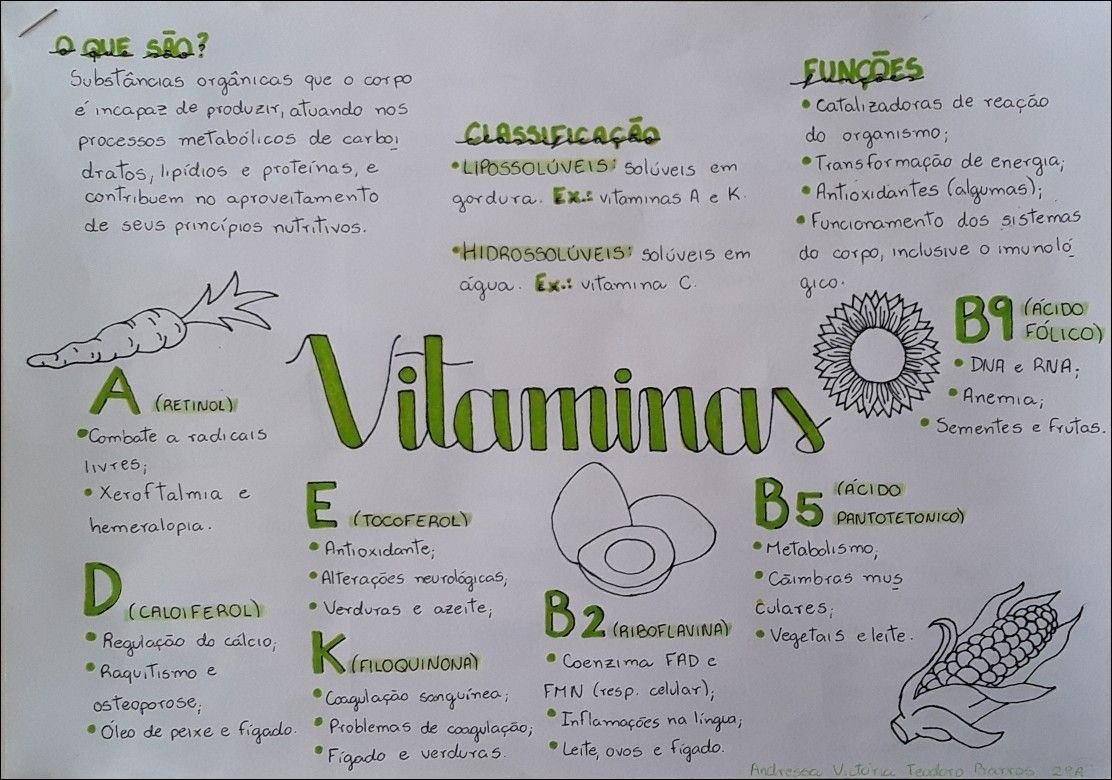 O QUE SÃO?
Substâncias orgânicas que o corpo
é incapaz de produzir, atuando nos
processos metabólicos de carboi
dratos, lipídios e proteínas, e
contribuem no aproveitamento
de seus princípios nutritivos.
CLASSIFICAÇÃO
classificação
• LIPOSSOLÚVEIS: solúveis em
gordura. Ex.: vitaminas A e K.
• HIDROSSOLÚVEIS: solúveis em
água. Ex.: vitamina C.
FUNÇÕES
funções
• Catalizadoras de reação
do organismo;
• Transformação de energia;
• Antioxidantes (algumas);
• Funcionamento dos sistemas
do corpo, inclusive o imunoló
gico.
Vitaminas
A (RETINOL)
• Combate a radicais
livres;
• Xeroftalmia e
hemeralopia.
D (CALCIFEROL)
• Regulação do cálcio;
• Raquitismo e
osteoporose;
• Óleo de peixe e fígado.
E (TOCOFEROL)
• Antioxidante;
• Alterações neurológicas;
• Verduras e azeite;
K (FILOQUINONA)
• Coagulação sanguínea;
• Problemas de coagulação;
• Fígado e verduras.
B2 (RIBOFLAVINA)
• Coenzima FAD e
FMN (resp. celular);
• Inflamações na língua;
• Leite, ovos e fígado.
B5 (ÁCIDO
PANTOTETONICO)
• Metabolismo;
• Cãimbras mus
culares;
• Vegetais e leite.
B9 (ÁCIDO
FÓLICO)
• DNA e RNA;
• Anemia;
• Sementes e frutas.
Andressa Victória Teodoro Barros 2ºA